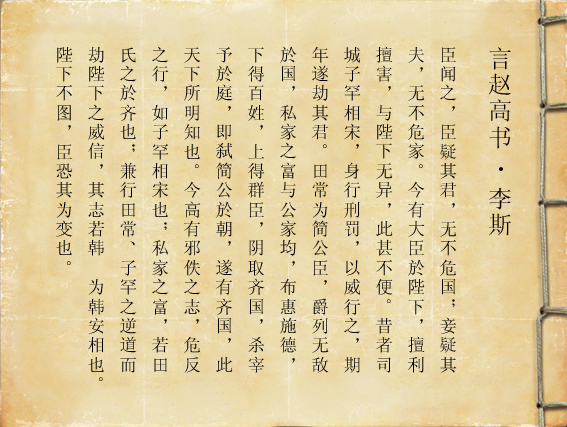 言赵高书·李斯
臣闻之，臣疑其君，无不危国；妾疑其
夫，无不危家。今有大臣於陛下，擅利
擅害，与陛下无异，此甚不便。昔者司
城子罕相宋，身行刑罚，以威行之，期
年遂劫其君。田常为简公臣，爵列无敌
於国，私家之富与公家均，布惠施德，
下得百姓，上得群臣，阴取齐国，杀宰
予於庭，即弑简公於朝，遂有齐国，此
天下所明知也。今高有邪佚之志，危反
之行，如子罕相宋也；私家之富，若田
氏之於齐也；兼行田常、子罕之逆道而
劫陛下之威信，其志若韩　为韩安相也。
陛下不图，臣恐其为变也。